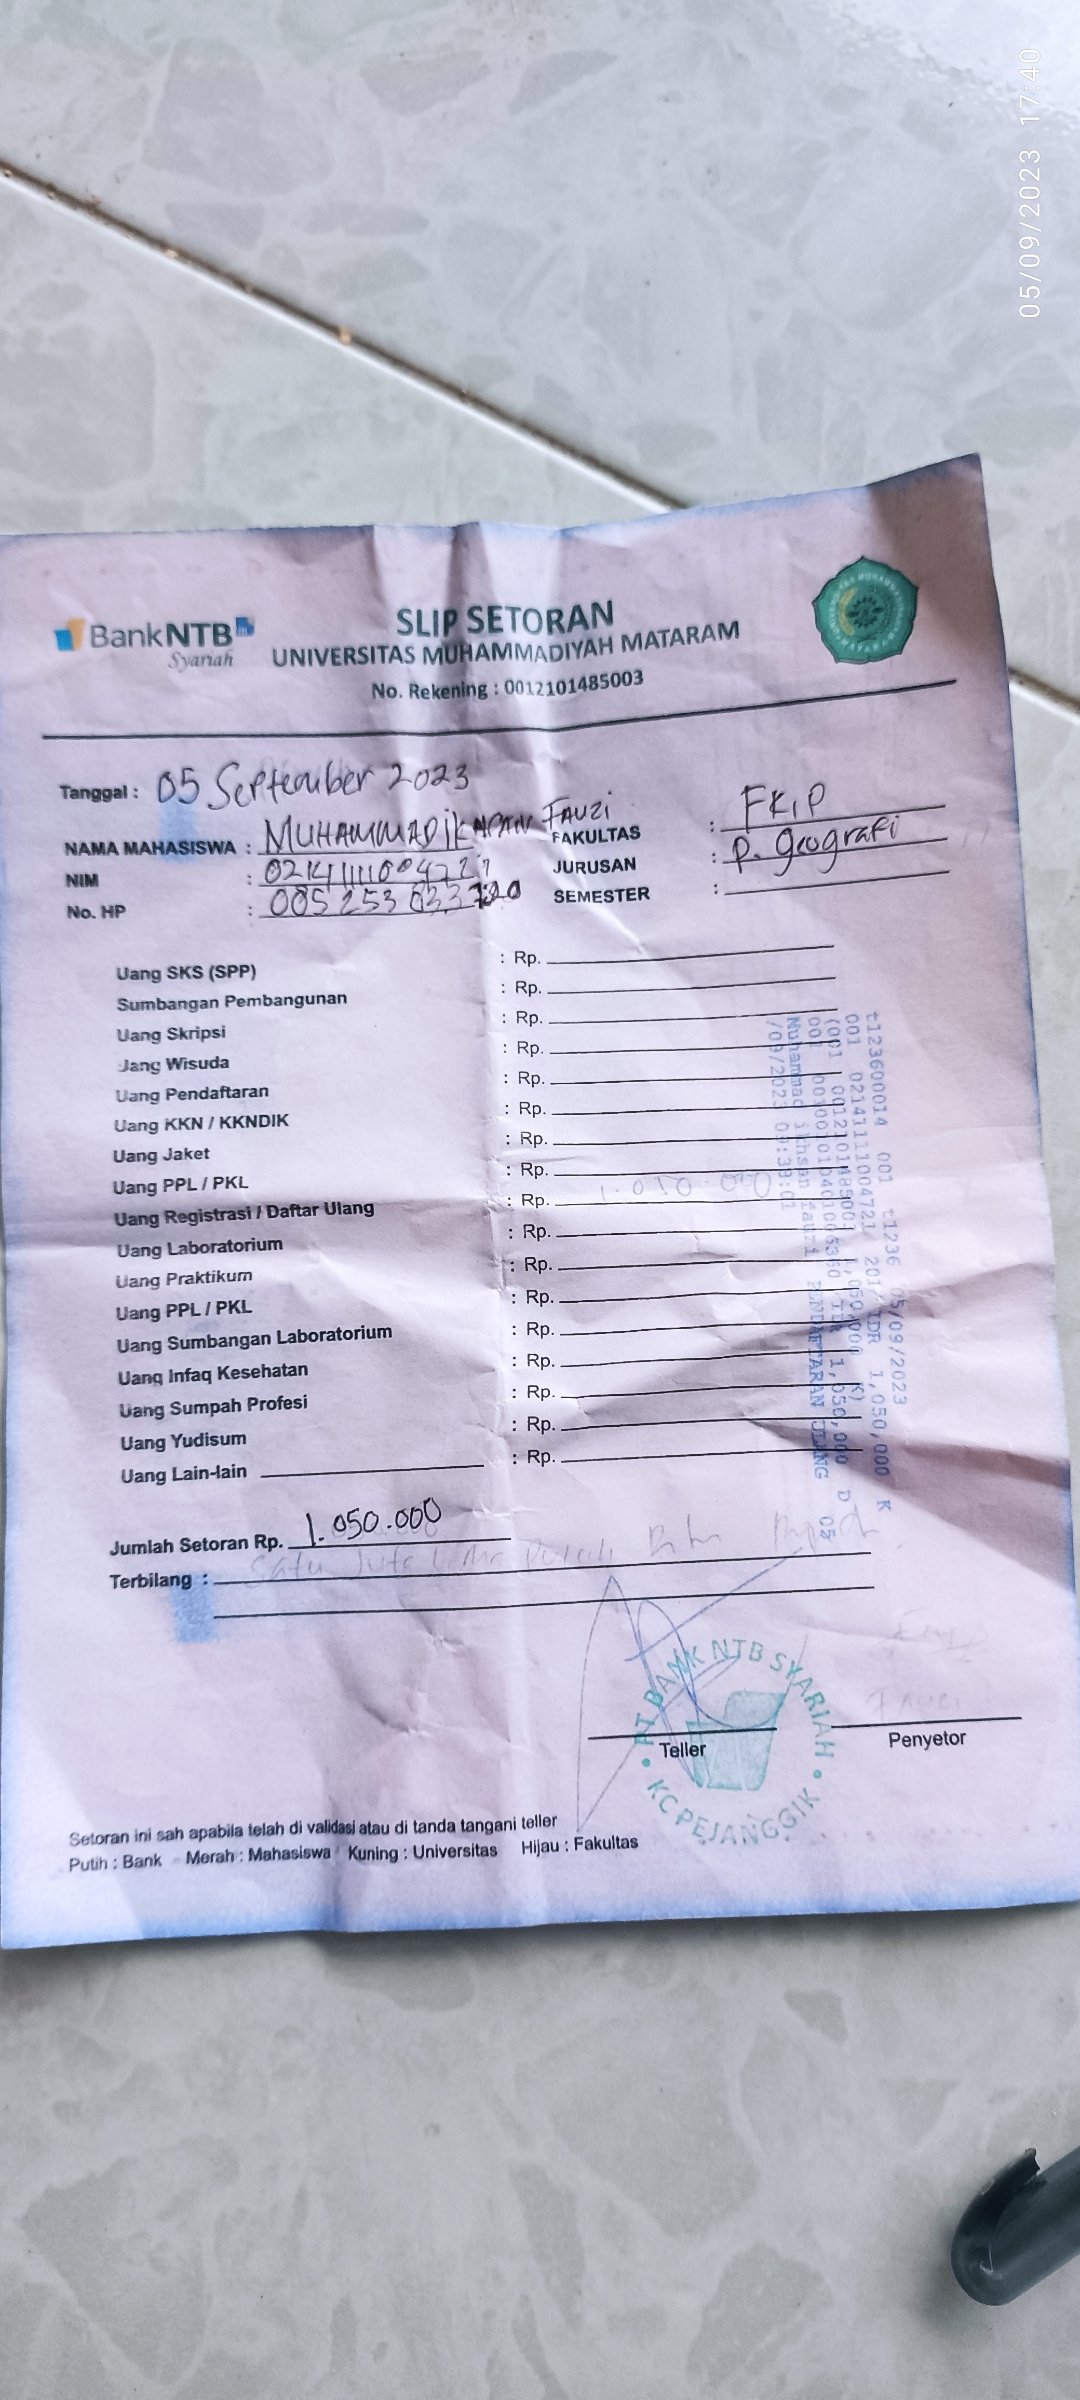 05/09/2023 17:40
BankNTB
Syariah
SLIP SETORAN
UNIVERSITAS MUHAMMADIYAH MATARAM
No. Rekening : 0012101485003
Tanggal : 05 September 2023
NAMA MAHASISWA : MUHAMMAD Fauzi
NIM :
No. HP :
FAKULTAS : FKIP
JURUSAN : P. Geografi
SEMESTER :
Uang SKS (SPP) : Rp.
Sumbangan Pembangunan : Rp.
Uang Skripsi : Rp.
Uang Wisuda : Rp.
Uang Pendaftaran : Rp.
Uang KKN / KKNDIK : Rp.
Uang Jaket : Rp.
Uang PPL / PKL : Rp.
Uang Registrasi / Daftar Ulang : Rp. 1.050.000
Uang Laboratorium : Rp.
Uang Praktikum : Rp.
Uang PPL / PKL : Rp.
Uang Sumbangan Laboratorium : Rp.
Uang Infaq Kesehatan : Rp.
Uang Sumpah Profesi : Rp.
Uang Yudisum : Rp.
Uang Lain-lain : Rp.
t123600014 001 t1236 05/09/2023
001 02141111004721 IDR 1,050,000 K
1,050,000 K)
1,050,000 D
Muhammad ikhsan fauzi PENDAFTARAN ULANG 05
/09/2023
Jumlah Setoran Rp. 1.050.000
Terbilang : Satu Juta Lima Puluh
PT BANK NTB SYARIAH
KC PEJANGGIK
Teller
Fauzi
Penyetor
Setoran ini sah apabila telah di validasi atau di tanda tangani teller
Putih : Bank Merah : Mahasiswa Kuning : Universitas Hijau : Fakultas